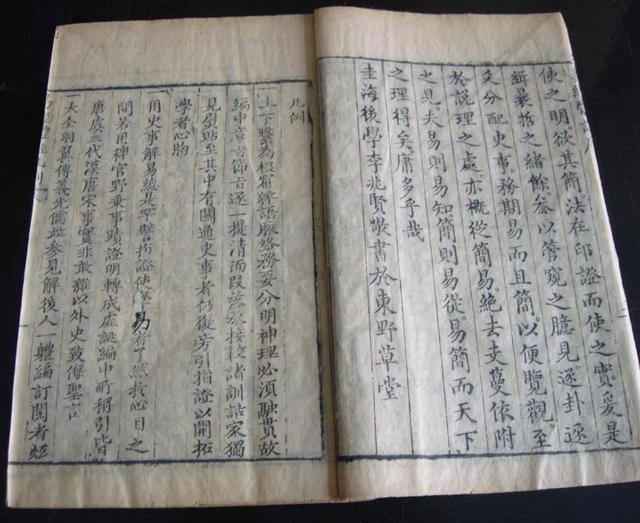 使之明欲其簡法在印證而使之實爰是
緝暴括之緒餘參以管窺之臆見逐卦逐
爻分配史事務期易而且簡以便覽觀至
於說理之處亦概從簡易絶去支蔓依附
之見夫易則易知簡則易從易簡而天下
之理得矣庸多乎哉
圭海後學李兆賢敬書於東野草堂
凡例
一上下繫為根窟辭語脈絡務要分明神理必須融貫故
編中章旨節旨逐一提清而段落承接較諸訓詁家獨
見慰貼至其中有關通史事者仍復旁引指證以開拓
學者心胸
一用史事解易總是罕譬指證使學易者了然於心目之
間若用稗官野乘事蹟證明轉成虛誕編中所稱引皆
唐虞三代漢唐宋事實非敢雜以外史致侮聖言
一大全羽翼傳義先儒
參見解後人一軆編訂閱者